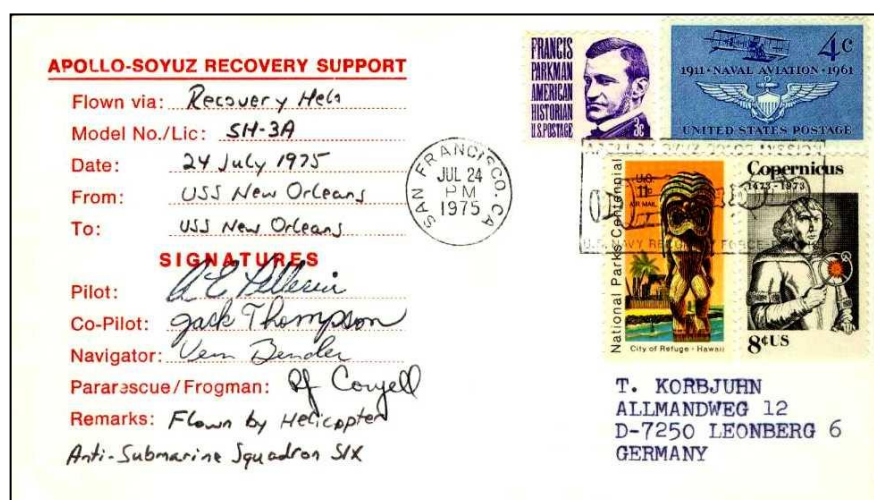 APOLLO-SOYUZ RECOVERY SUPPORT
Flown via: Recovery Helo
Model No./Lic: SH-3A
Date: 24 July 1975
From: USS New Orleans
To: USS New Orleans
SIGNATURES
Pilot:
Co-Pilot: Jack Thompson
Navigator: Vern Bender
Pararescue/Frogman: Coryell
Remarks: Flown by Helicopter
Anti-Submarine Squadron SIX
SAN FRANCISCO, CA
JUL 24
PM
1975
FRANCIS
PARKMAN
AMERICAN
HISTORIAN
U.S. POSTAGE
3c
4c
1911 · NAVAL AVIATION · 1961
UNITED STATES POSTAGE
APOLLO SOYUZ SPACE MISSION
U.S. NAVY RECOVERY FORCE
National Parks Centennial
U.S.
11c
AIR MAIL
City of Refuge · Hawaii
Copernicus
1473-1973
8¢US
T. KORBJUHN
ALLMANDWEG 12
D-7250 LEONBERG 6
GERMANY